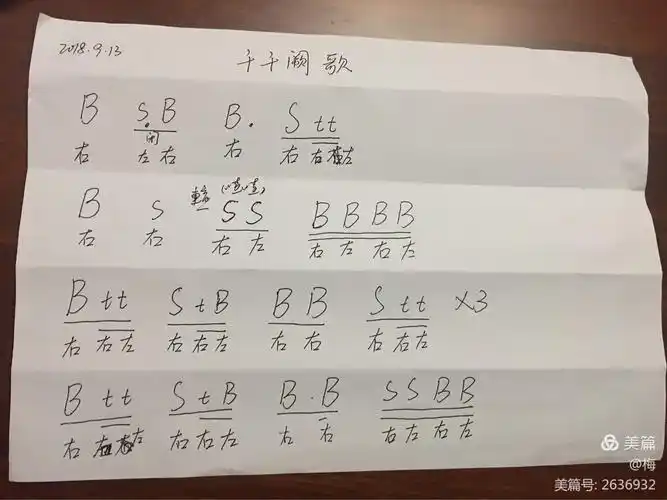 2018.9.13
千千阙歌
B S B B. S t t
闭
右 左 右 右 右 右 左
(哇哇)
B S S S B B B B
右 右 右 左 右 左 右 左
B t t S t B B B S t t ×3
右 右 左 右 右 左 右 右 右 右 左
B t t S t B B . B S S B B
右 右 左 右 右 左 右 右 右 左 右 左
美篇
@梅
美篇号: 2636932